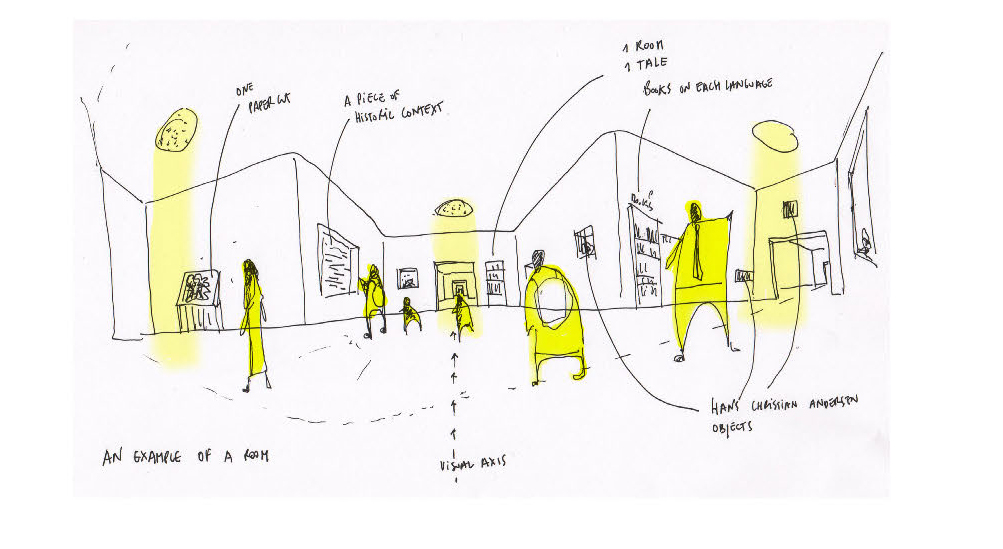 1 ROOM
1 TALE
ONE
PAPER CUT
A PIECE OF
HISTORIC CONTEXT
BOOKS ON EACH LANGUAGE
BOOKS
HANS CHRISSIAN ANDERSEN
OBJECTS
AN EXAMPLE OF A ROOM
VISUAL AXIS